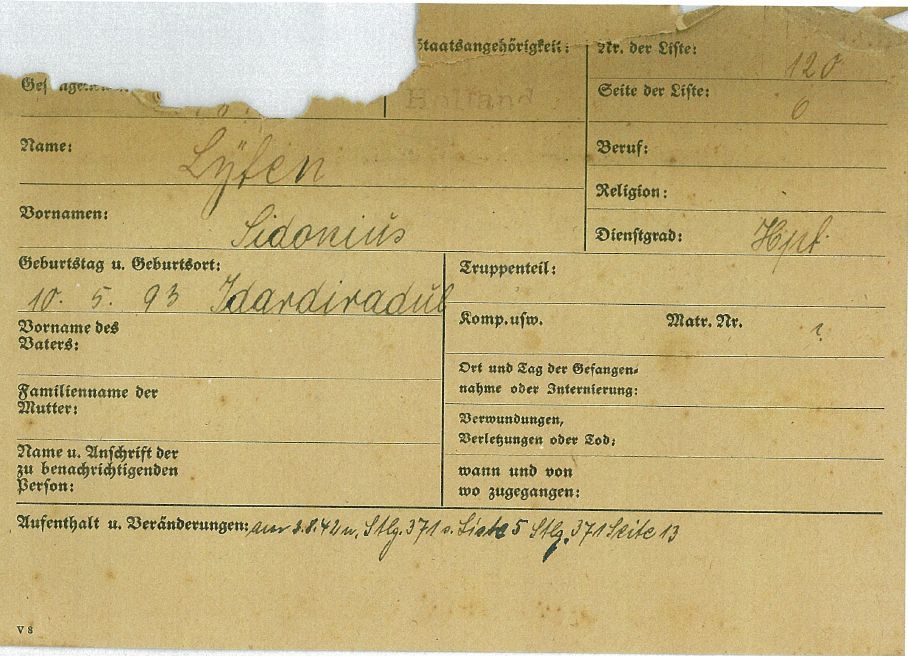 Staatsangehörigkeit: Nr. der Liste: 120
Holland Seite der Liste: 6
Name: Lÿten Beruf:
Religion:
Vornamen: Sidonius Dienstgrad: Hpt.
Geburtstag u. Geburtsort: Truppenteil:
10. 5. 93 Idardiradul
Vorname des Vaters: Komp. usw. Matr. Nr.
Ort und Tag der Gefangen-
nahme oder Internierung:
Familienname der
Mutter:
Verwundungen,
Verletzungen oder Tod:
Name u. Anschrift der
zu benachrichtigenden
Person:
wann und von
wo zugegangen:
Aufenthalt u. Veränderungen: am 3.8.42 n. Stlg. 371 s. Liste 5 Stlg. 371 Seite 13
V 8